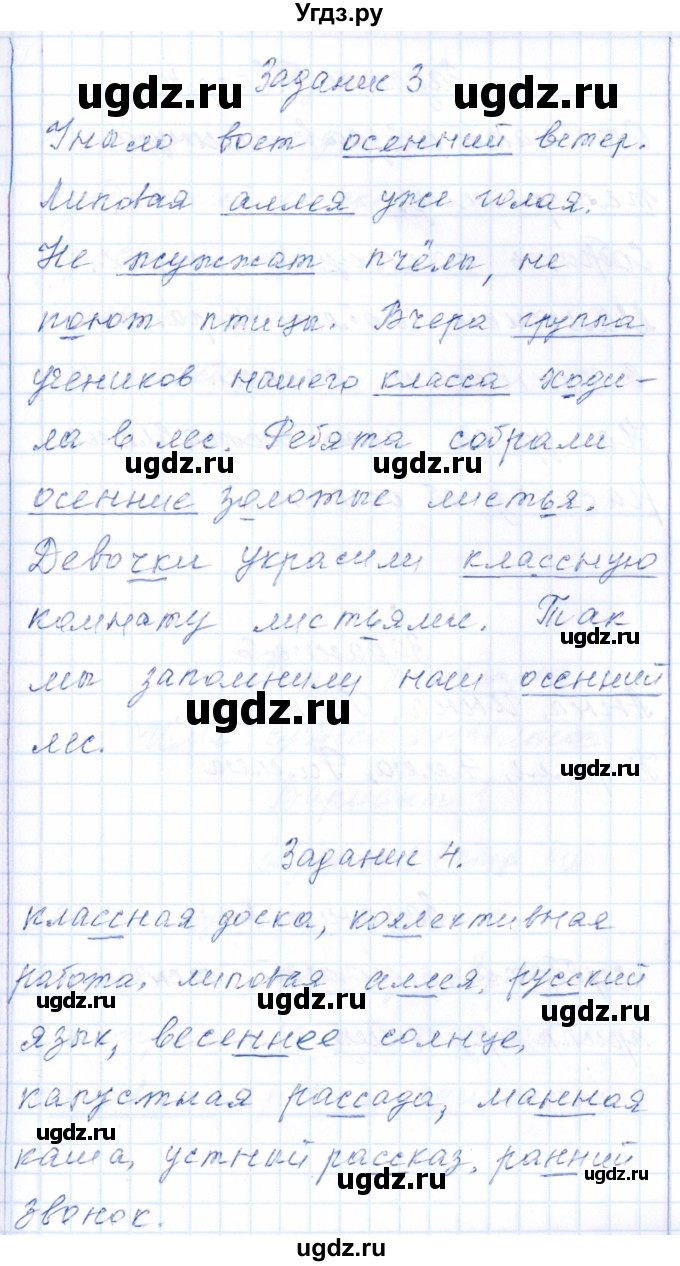 Угдз.ру
ugdz.ru ugdz.ru
Задание 3
Уныло воет осенний ветер.
Липовая аллея уже голая.
Не жужжат пчёлы, не
поют птицы. Вчера группа
учеников нашего класса ходи-
ла в лес. Ребята собрали
ugdz.ru ugdz.ru
осенние золотые листья.
Девочки украсили классную
комнату листьями. Так
ugdz.ru
мы запомнили наш осенний
ugdz.ru
лес.
ugdz.ru
Задание 4.
классная доска, коллективная
работа, липовая аллея, русский
ugdz.ru ugdz.ru ugdz.ru
язык, весеннее солнце,
капустная рассада, манная
ugdz.ru
каша, устный рассказ, ранний
ugdz.ru ugdz.ru
звонок.
ugdz.ru